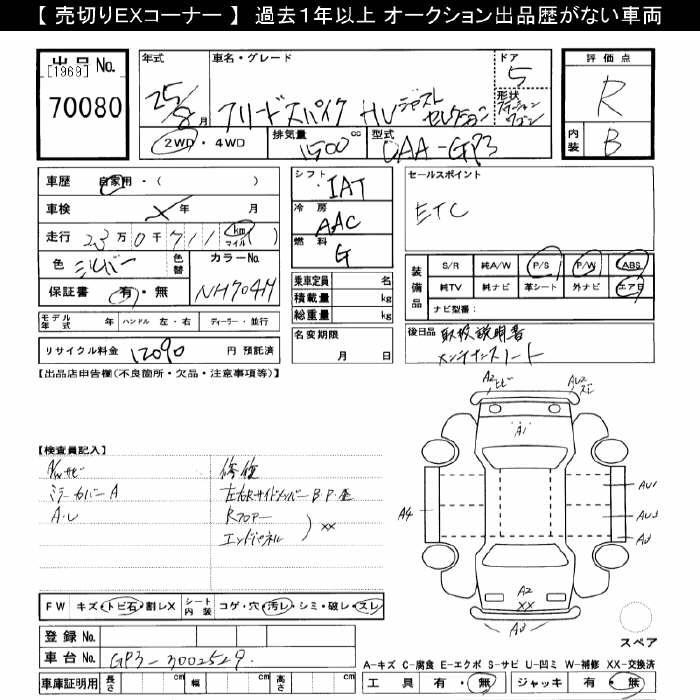 【 売切りEXコーナー 】 過去１年以上 オークション出品歴がない車両
出品 No.
[1969]
70080
年式
25/8月
車名・グレード
フリードスパイク HV ジャスト セレクション
ドア
5
形状
ステーションワゴン
2WD・4WD
排気量
1500 cc
型式
DAA-GP3
評価点
R
内装
B
車歴 自家用・( )
車検 年 月
走行 23万0千711 (km マイル)
色 シルバー
色替
カラーNo.
NH704M
保証書 有・無
シフト
IAT
冷房
AAC
燃料
G
乗車定員 名
積載量 kg
総重量 kg
セールスポイント
ETC
装備品
S/R 純A/W P/S P/W ABS
純TV 純ナビ 革シート 外ナビ エアB
ナビ型番：
モデル年式 年 ハンドル 左・右 ディーラー・並行
リサイクル料金 12090 円 預託済
名変期限
月 日
後日品 取扱説明書
メンテナンスノート
【出品店申告欄(不良箇所・欠品・注意事項等)】
【検査員記入】
A/Wサビ
ミラーカバーA
A・U
修復
左右Rサイドメンバー B・P・歪
Rフロアー
エンドパネル
XX
A2
AU2
A1
A4
AU1
A2
XX
A3
FW キズ・トビ石・割レX
シート内装 コゲ・穴・汚レ・シミ・破レ・スレ
登録 No.
車台 No. GP3-3002529
車庫証明用 長さ 幅 高さ
スペア
A-キズ C-腐食 E-エクボ S-サビ U-凹ミ W-補修 XX-交換済
工具 有・無 ジャッキ 有・無